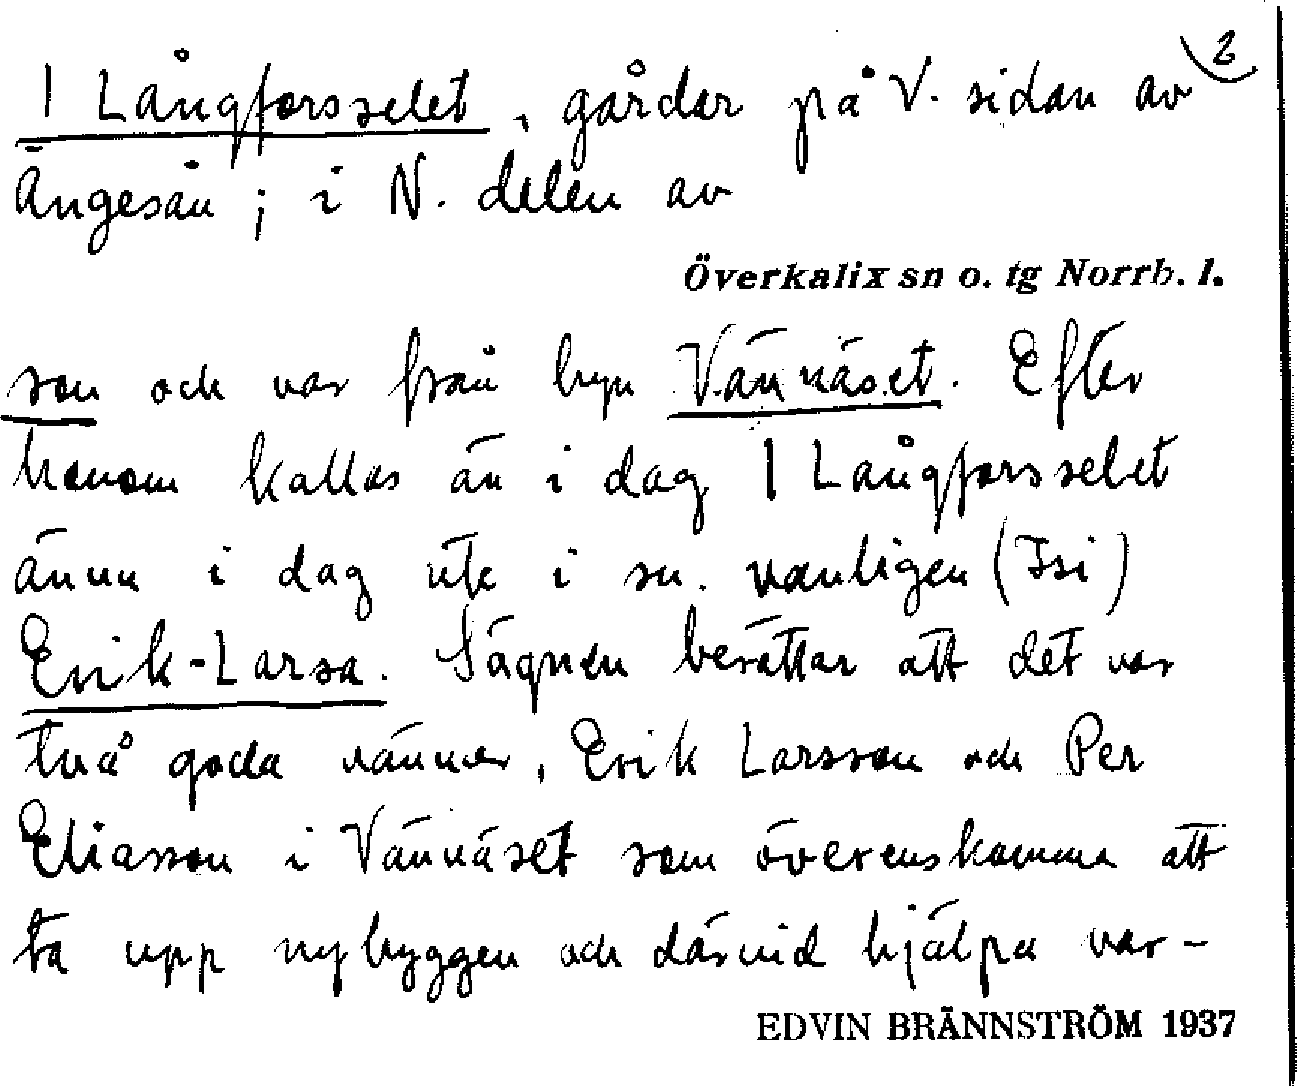 2
1 Långforsselet, gårdar på V. sidan av
Ängesån; i N. delen av
Överkalix sn o. tg Norrb. l.
son och var från byn Vännäset. Efter
honom kallas än i dag 1 Långforsselet
ännu i dag ute i sn. vanligen (Isi)
Erik-Larsa. Sägnen berättar att det var
två goda vänner, Erik Larsson och Per
Eliasson i Vännäset som överenskomma att
ta upp nybyggen och därvid hjälpa var-
EDVIN BRÄNNSTRÖM 1937